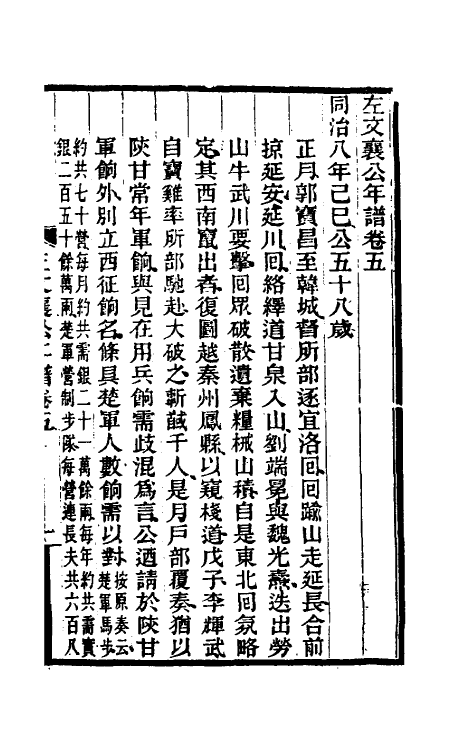 左文襄公年譜卷五
同治八年己巳公五十八歲
正月郭寶昌至韓城督所部逐宜洛回回踰山走延長合前
掠延安延川回絡繹道甘泉入山劉端冕與魏光燾迭出勞
山牛武川要擊回眾破散遺棄糧械山積自是東北回氛略
定其西南竄出者復圖越秦州鳳縣以窺棧道戊子李輝武
自寶雞率所部馳赴大破之斬馘千人是月戶部覆奏猶以
陝甘常年軍餉與見在用兵餉需歧混為言公迺請於陝甘
軍餉外別立西征餉名條具楚軍人數餉需以對按原奏云楚軍馬步
約共七十營每月約共需銀二十一萬餘兩每年約共需實
銀二百五十餘萬兩楚軍營制步隊每營連長夫共六百八
左文襄公年譜卷五